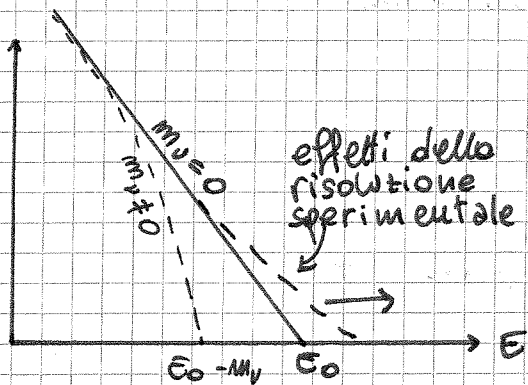 mν = 0
mν ≠ 0
effetti della
risoluzione
sperimentale
E₀ - mν
E₀
E